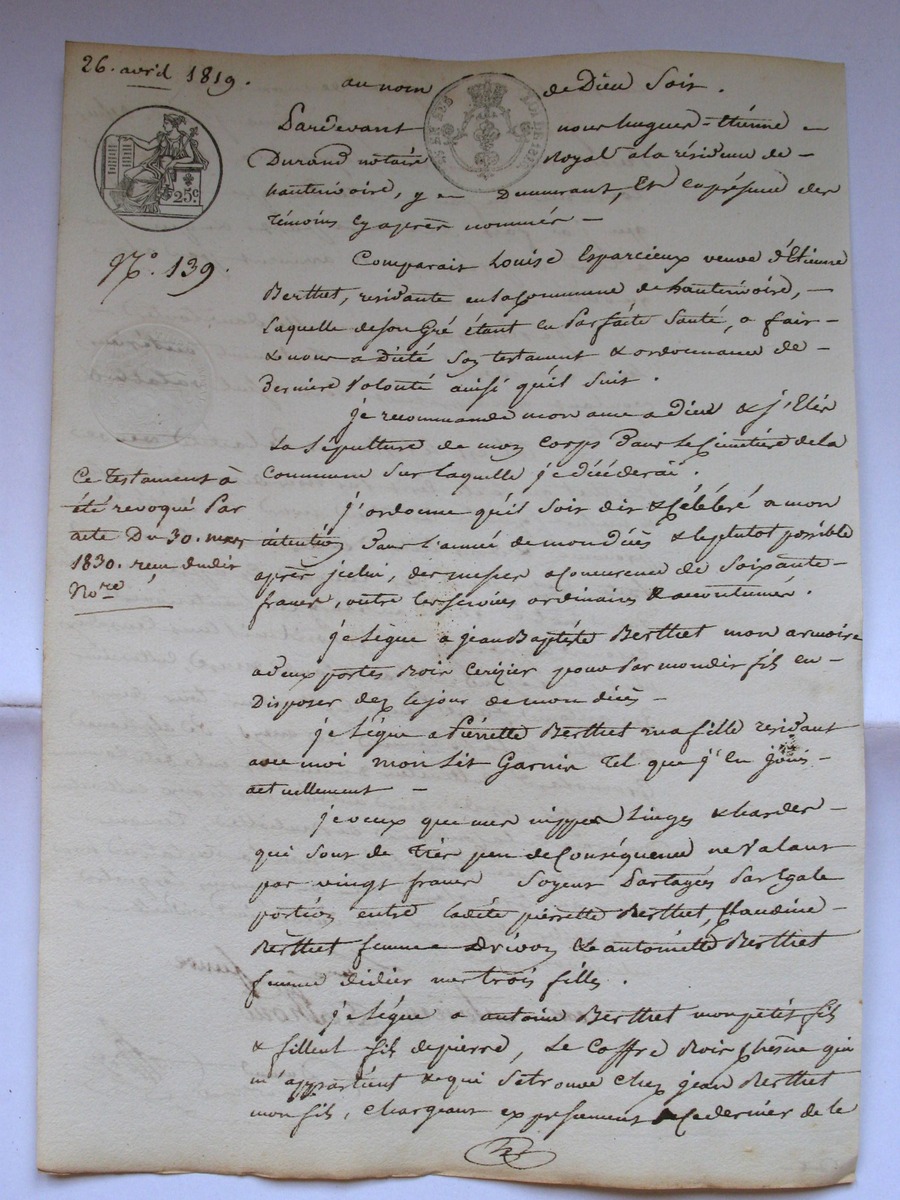 26. avril 1819.
au nom de Dieu Soit.
25c
Pardevant nous hugues-Etienne
Durand notaire Royal a la résidence de
hauterivoire, y Demeurant, Et en présence des
témoins cy après nommés
N.° 139.
Comparait Louise Esparcieux veuve d'Etienne
Berthet, residante en la Commune de hauterivoire,
Laquelle de son Gré étant en Parfaite Santé, a fait
& nous a Dicté Son testament & ordonnance de
Derniere Volonté ainsi qu'il Suit.
je recommande mon ame a Dieu & j'Elis
La Sépulture de mon Corps Dans Le Cimetiere de la
Commune Sur laquelle je décéderai.
Ce testament à
été revoqué Par
acte Du 30. mars
1830. recu dudit
No.re
j'ordonne qu'il Soit dit & Célébré a mon
intention Dans L'année de mon Décès & le plutot possible
après jcelui, des messes a Concurence de Soixante
francs, outre les Services ordinaires & accoutumés.
je Lègue a jean Baptiste Berthet mon armoire
a deux portes Bois Cerizier pour Par mon dit fils en
Disposer dez le jour de mon décès
je Lègue a Pierrette Berthet ma fille residant
avec moi mon Lit Garnin Tel que j'En jouis
actuellement
je veux que mes nippes Linges & hardes
qui Sont de Très peu de Conséquence ne Valant
pas vingt francs Soyent Partagés Par Egale
portion entre Ladite pierrette Berthet, Claudine
Berthet femme Drivon & antoinette Berthet
femme didier mes trois filles.
je Lègue a antoine Berthet mon petit fils
& filleul fils de pierre, Le Coffre Bois Chesne qui
m'appartient & qui Se trouve Chez jean Berthet
mon fils, Chargeant expressement Ce dernier de le